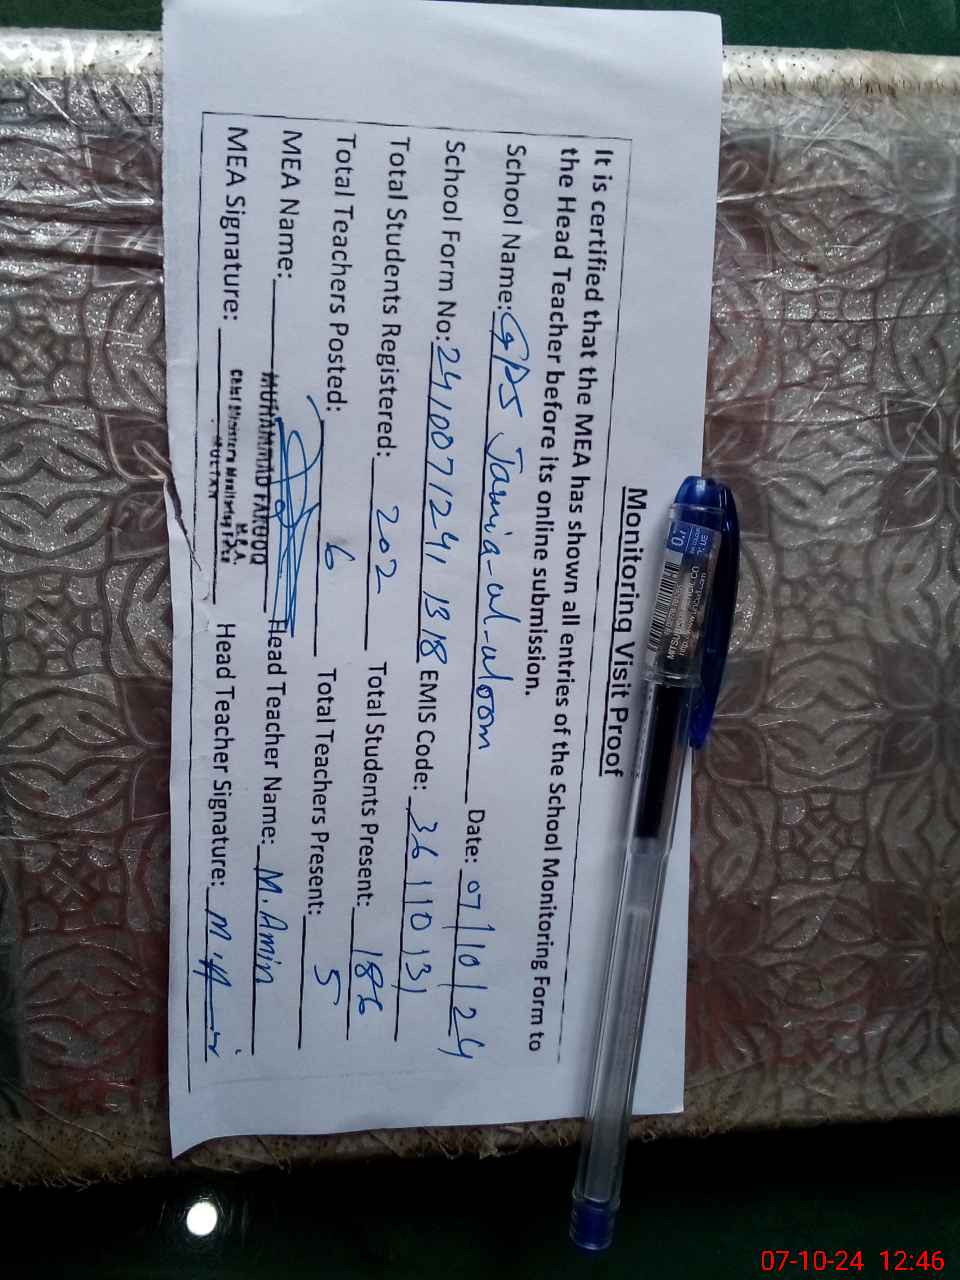 Monitoring Visit Proof
It is certified that the MEA has shown all entries of the School Monitoring Form to
the Head Teacher before its online submission.
School Name: GPS Jamia-ul-uloom Date: 07/10/24
School Form No: 241007124 1318 EMIS Code: 36110131
Total Students Registered: 202 Total Students Present: 186
Total Teachers Posted: 6 Total Teachers Present: 5
MEA Name: MUHAMMAD FAROOQ Head Teacher Name: M. Amin
M.E.A.
MEA Signature: Chief Ministers Monitoring Force Head Teacher Signature:
MULTAN
07-10-24 12:46